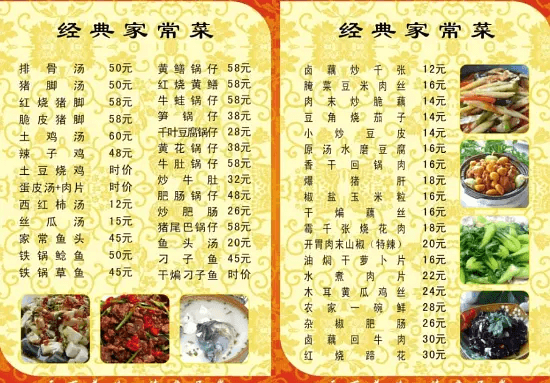 经典家常菜
排骨汤 50元
猪脚汤 50元
红烧猪脚 58元
脆皮猪脚 58元
土鸡汤 60元
辣子鸡 48元
土豆烧鸡 时价
蛋皮汤+肉片 时价
西红柿汤 12元
丝瓜汤 15元
家常鱼头 45元
铁锅鲶鱼 50元
铁锅草鱼 45元
黄鳝锅仔 58元
红烧黄鳝 58元
牛蛙锅仔 58元
笋锅仔 38元
千叶豆腐锅仔 28元
黄花锅仔 38元
牛肚锅仔 58元
炒牛肚 32元
肥肠锅仔 48元
炒肥肠 26元
猪尾巴锅仔 58元
鱼头汤 20元
刁子鱼 45元
干煸刁子鱼 时价
经典家常菜
卤藕炒千张 12元
腌菜豆米肉丝 16元
肉末炒脆藕 14元
豆角烧茄子 14元
小炒豆皮 14元
原汤水磨豆腐 16元
香干回锅肉 16元
爆猪肝 18元
椒盐玉米粒 16元
干煸藕丝 16元
霉千张烧花肉 18元
开胃肉末山椒（特辣） 20元
油焖干萝卜片 16元
水煮肉片 22元
木耳黄瓜鸡丝 24元
农家一碗鲜 28元
杂椒肥肠 26元
卤藕回牛肉 30元
红烧蹄花 30元